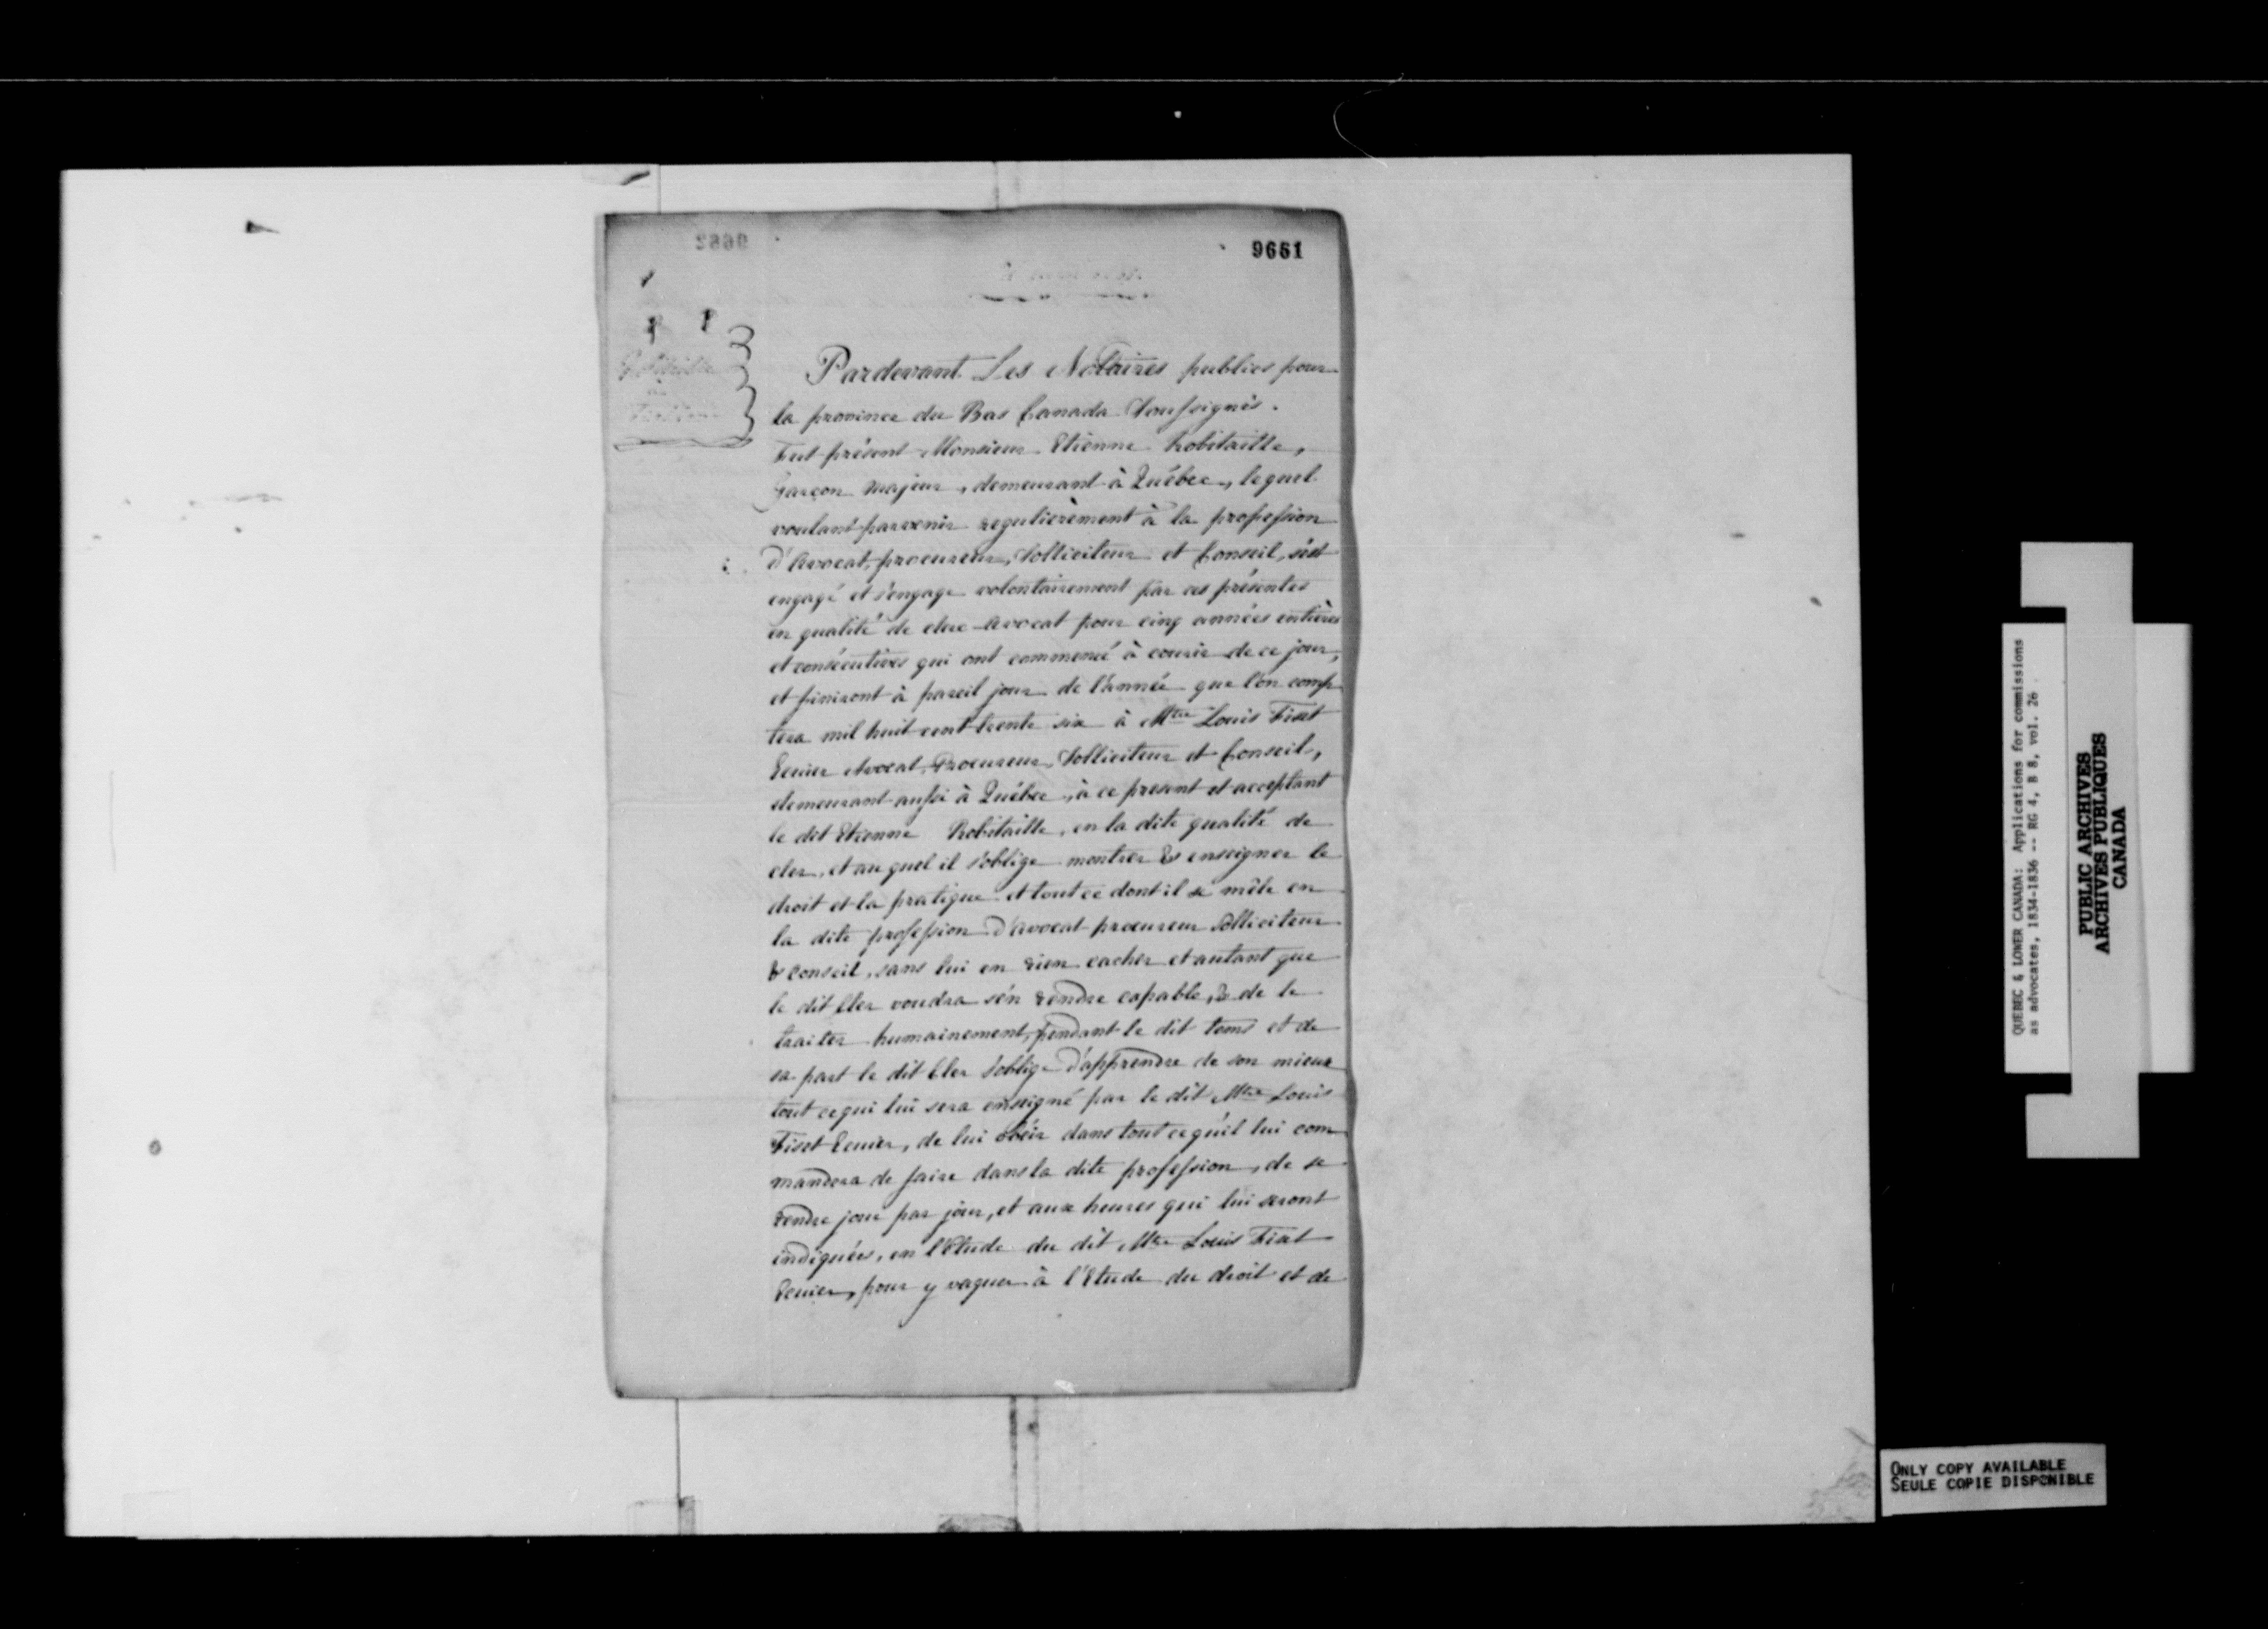 9661
Pardevant Les Notaires publics pour
la province du Bas Canada Soussignés.
Fut présent Monsieur Etienne Robitaille,
Garçon majeur, demeurant à Québec, lequel
voulant parvenir regulièrement à la profession
d'Avocat, procureur, Solliciteur et Conseil, s'est
engagé et s'engage volontairement par ces présentes
en qualité de clerc Avocat pour cinq années entières
et consécutives qui ont commencé à courir de ce jour,
et finiront à pareil jour de l'année que l'on comp
tera mil huit cent trente six à Mtre Louis Fiset
Ecuier Avocat, Procureur, Solliciteur et Conseil,
demeurant aussi à Québec, à ce present et acceptant
le dit Etienne Robitaille, en la dite qualité de
clerc, et au quel il s'oblige montrer & enseigner le
droit et la pratique et tout ce dont il se mêle en
la dite profession d'avocat procureur Solliciteur
& conseil, sans lui en rien cacher et autant que
le dit Clerc voudra s'en rendre capable, & de le
traiter humainement, pendant le dit tems et de
sa part le dit Clerc s'oblige d'apprendre de son mieux
tout ce qui lui sera enseigné par le dit Mtre Louis
Fiset Ecuier, de lui obéir dans tout ce qu'il lui com
mandera de faire dans la dite profession, de se
rendre jour par jour, et aux heures qui lui seront
indiquées, en l'Etude du dit Mtre Louis Fiset
Ecuier, pour y vaquer à l'Etude du droit et de
QUEBEC & LOWER CANADA: Applications for commissions
as advocates, 1834-1836 -- RG 4, B 8, vol. 26
PUBLIC ARCHIVES
ARCHIVES PUBLIQUES
CANADA
ONLY COPY AVAILABLE
SEULE COPIE DISPONIBLE